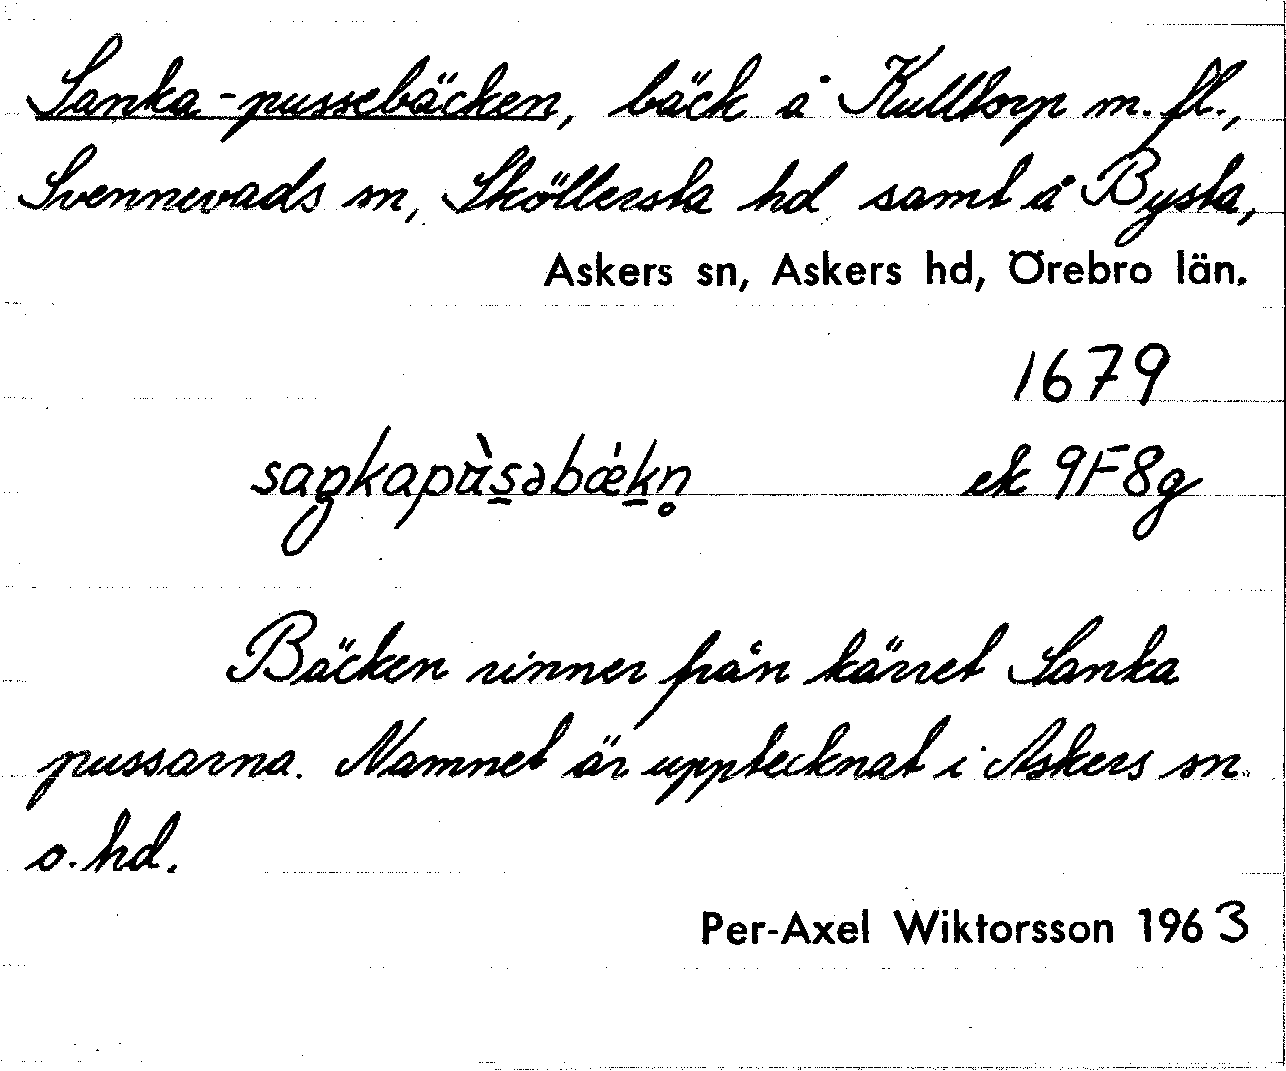 Sanka-pussebäcken, bäck å Kulltorp m. fl.,
Svennevads sn, Sköllersta hd samt å Bysta,
Askers sn, Askers hd, Örebro län.
1679
saŋkapʉ̀s̱əbǽḵn̥ ek 9F8g
Bäcken rinner från kärret Sanka
pussarna. Namnet är upptecknat i Askers sn
o. hd.
Per-Axel Wiktorsson 1963